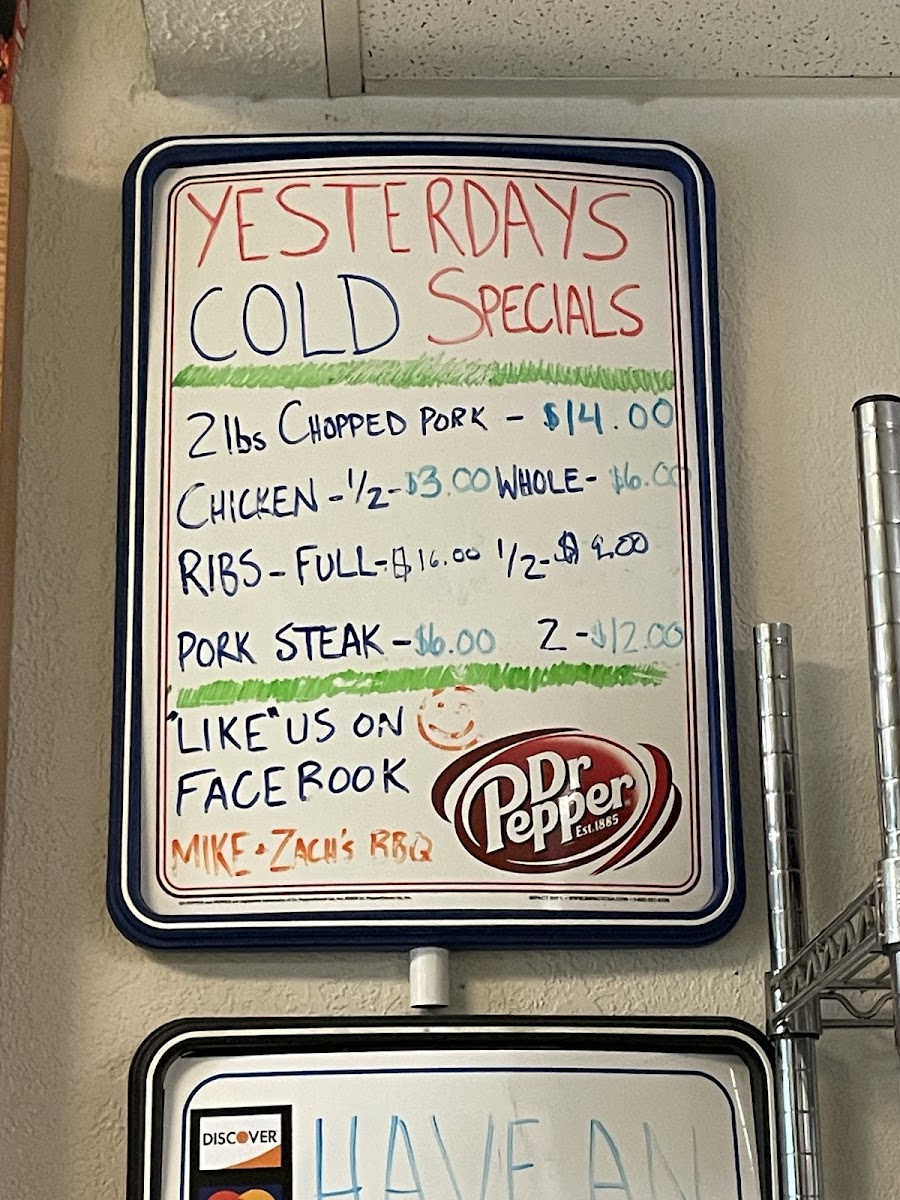 YESTERDAYS
COLD SPECIALS
2 lbs CHOPPED PORK - $14.00
CHICKEN - 1/2 - $3.00 WHOLE - $6.00
RIBS - FULL - $16.00 1/2 - $9.00
PORK STEAK - $6.00 2 - $12.00
"LIKE" US ON
FACEBOOK
MIKE & ZACH'S BBQ
Dr
Pepper
Est. 1885
DISCOVER
HAVE AN